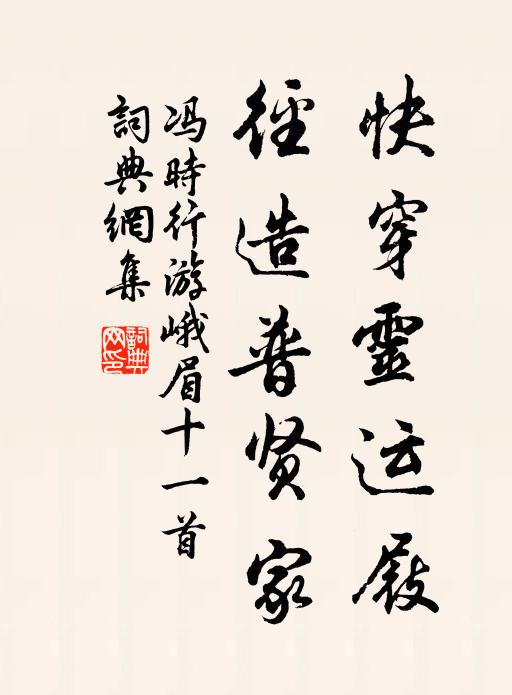 快穿靈运屐
径造普贤家
冯時行游峨眉十一首
詞典網集
詞典網印